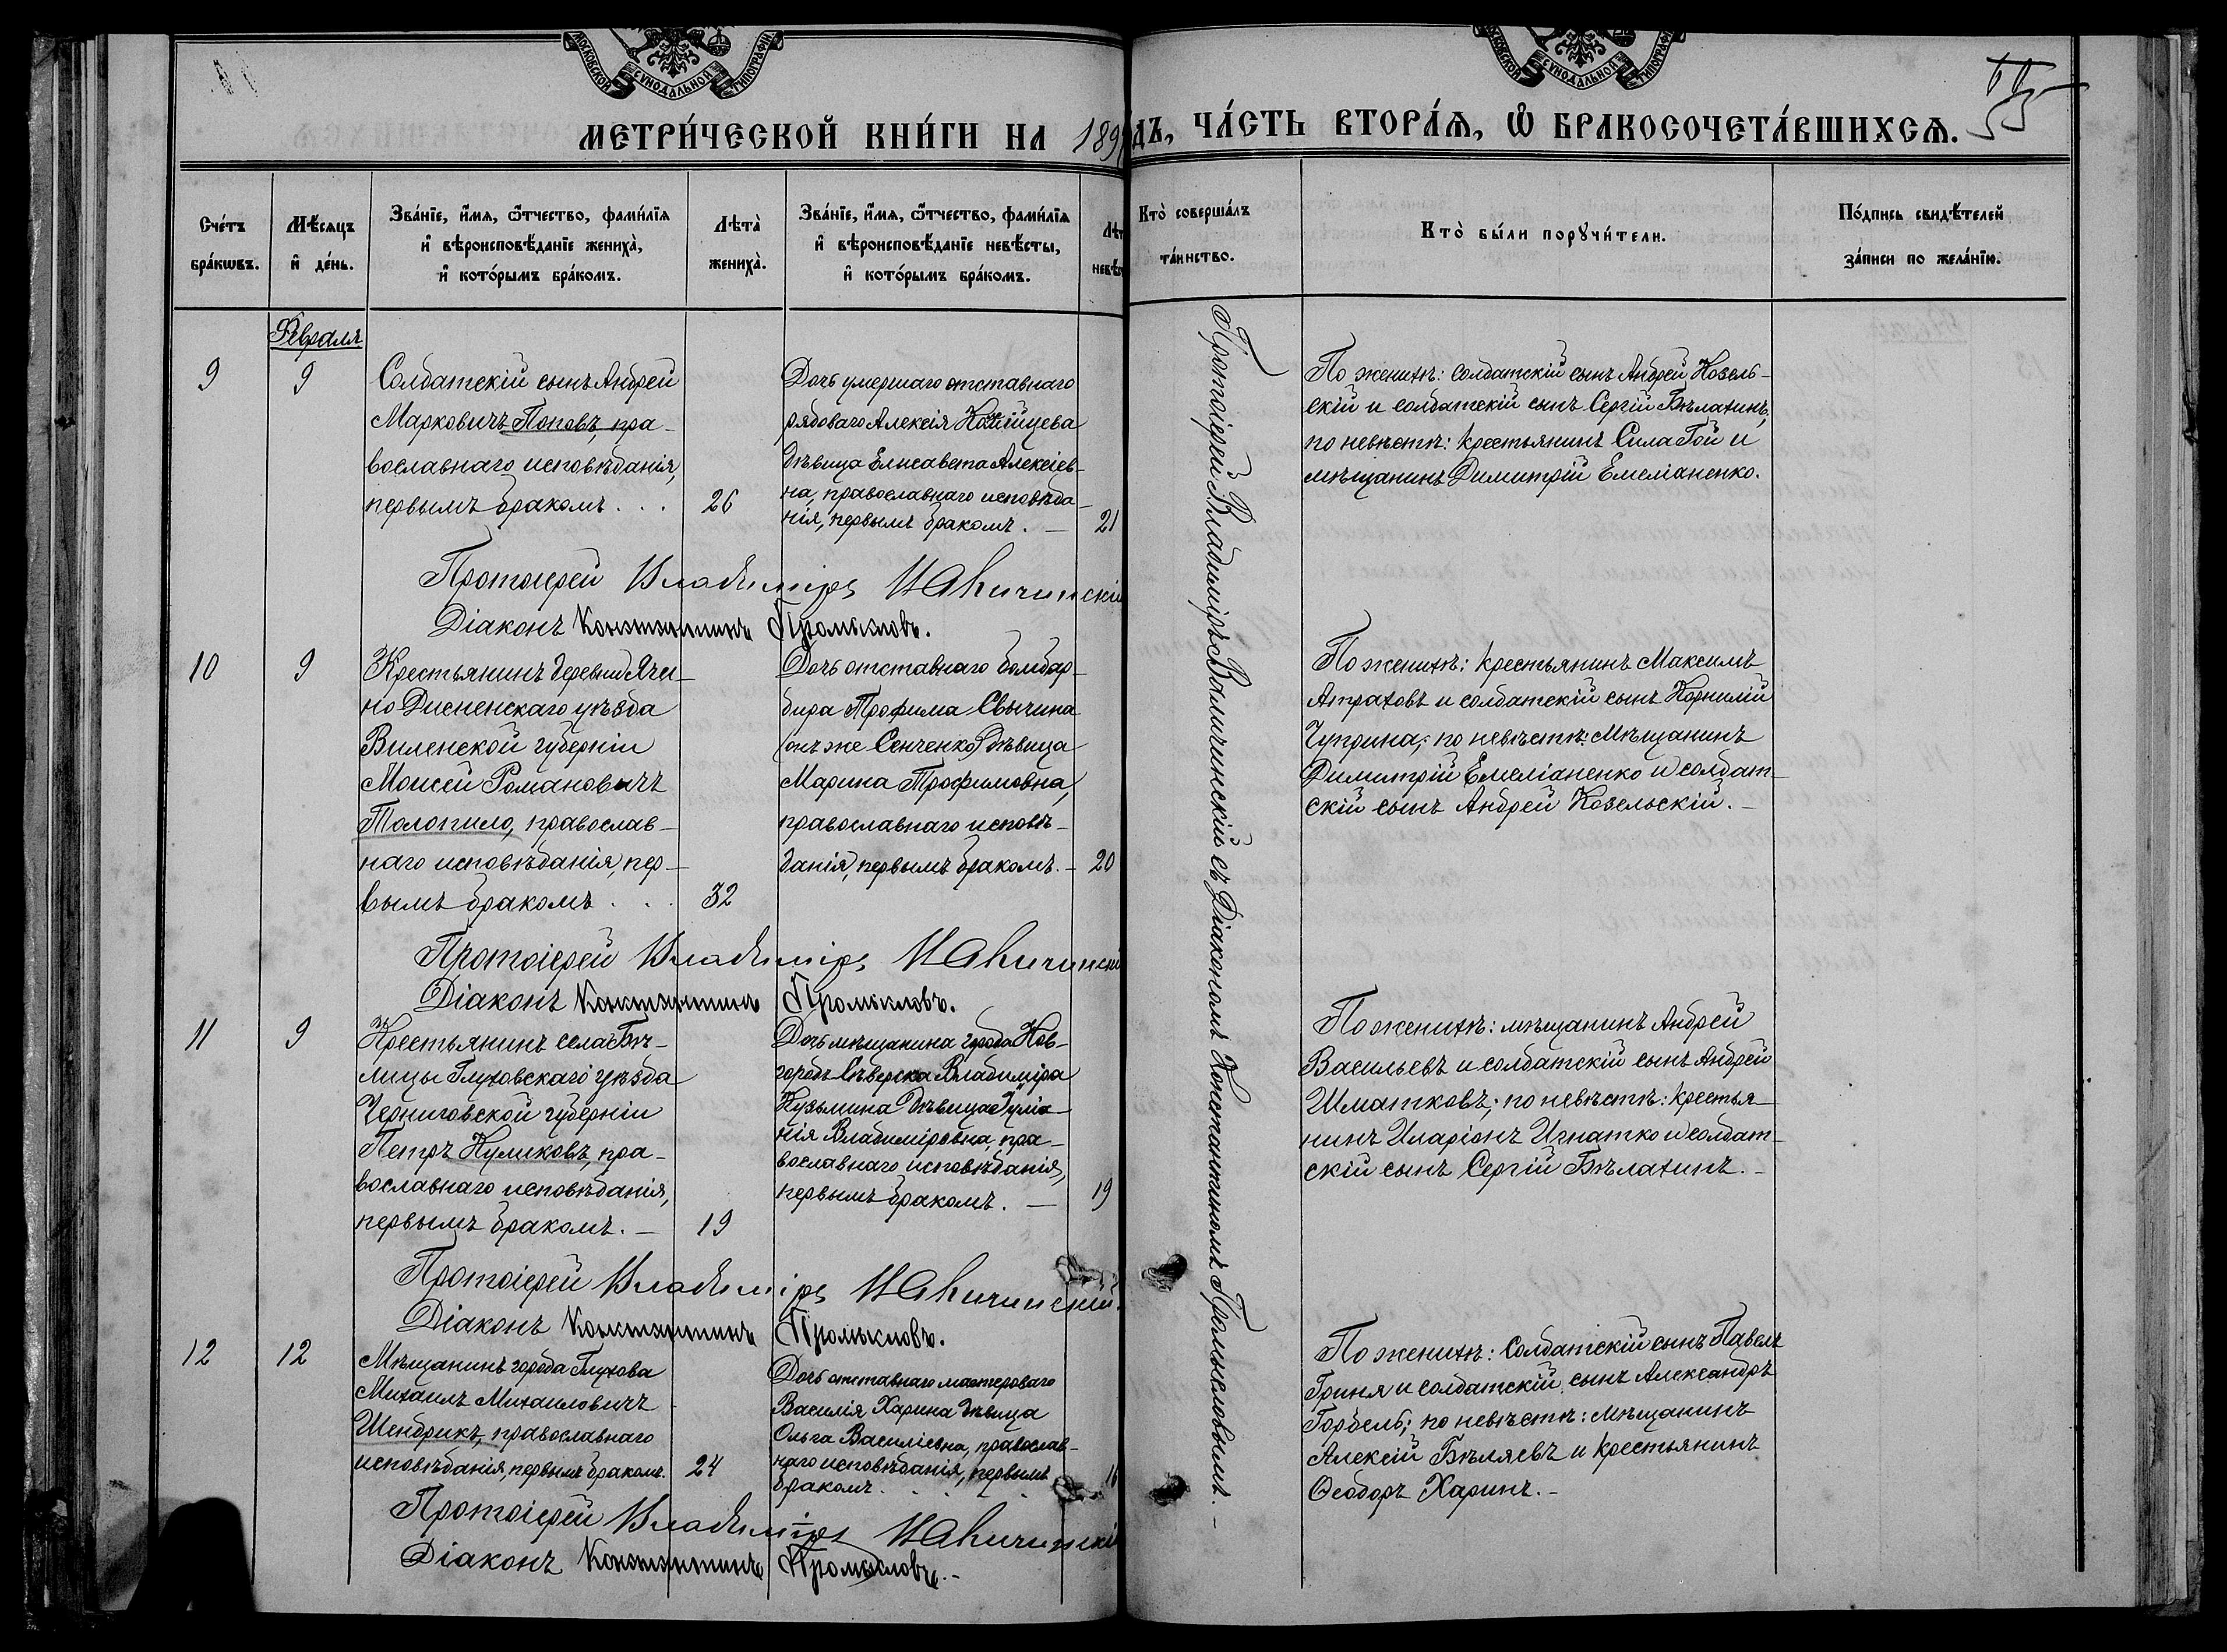 МОСКОВСКОЙ СѴНОДАЛЬНОЙ ТИПОГРАФІИ
МОСКОВСКОЙ СѴНОДАЛЬНОЙ ТИПОГРАФІИ
55
МЕТРИ́ЧЕСКОЙ КНИ́ГИ НА 189
ДЪ, ЧА́СТЬ ВТОРА́Я, Ѡ҆ БРАКОСОЧЕТА́ВШИХСЯ.
Сче́тъ бра́кѡвъ.
Мѣ́сяцъ и҆ де́нь.
Зва́нїе, и҆́мя, ѻ҆́тчество, фами́лїя и҆ вѣроисповѣ́данїе жениха̀, и҆ кото́рымъ бра́комъ.
Лѣта̀ жениха̀.
Зва́нїе, и҆́мя, ѻ҆́тчество, фами́лїя и҆ вѣроисповѣ́данїе невѣ́сты, и҆ кото́рымъ бра́комъ.
Лѣт невѣ
Кто̀ соверша́лъ та́инство.
Кто̀ бы́ли порꙋчи́тели.
По́дпись свидѣ́телей за́писи по жела́нїю.
Февраля
9
9
Солдатскій сынъ Андрей
Марковичъ Поповъ, пра-
вославнаго исповѣданія,
первымъ бракомъ . . .
26
Дочь умершаго отставнаго
рядоваго Алексія
дѣвица Елисавета Алексіев-
на, православнаго исповѣда-
нія, первымъ бракомъ. —
21
По женихѣ: солдатскій сынъ Андрей Козель-
скій и солдатскій сынъ Сергій Бѣлахинъ,
по невѣстѣ: крестьянинъ Сила Гой и
мѣщанинъ Димитрій Емеліаненко.
Протоіерей Владиміръ
Діаконъ Константинъ Промысловъ.
10
9
Крестьянинъ деревни Ячи-
но Дисненскаго уѣзда
Виленской губерніи
Моисей Романовичъ
Толопило, православ-
наго исповѣданія, пер-
вымъ бракомъ . . .
32
Дочь отставнаго бомбар-
дира Трофима Свычина
(онъ же Сенченко) дѣвица
Марина Трофимовна,
православнаго исповѣ-
данія, первымъ бракомъ. -
20
По женихѣ: крестьянинъ Максимъ
Атраховъ и солдатскій сынъ Корнилій
Чуприна; по невѣстѣ: мѣщанинъ
Димитрій Емеліаненко и солдат-
скій сынъ Андрей Козельскій. -
Протоіерей Владиміръ
Діаконъ Константинъ Промысловъ.
11
9
Крестьянинъ села Бѣ-
лицы Глуховскаго уѣзда
Черниговской губерніи
Петръ Куликовъ, пра-
вославнаго исповѣданія,
первымъ бракомъ. —
19
Дочь мѣщанина города Нов-
городъ Сѣверска Владиміра
Кузьмина дѣвица Іуліа-
нія Владиміровна, пра-
вославнаго исповѣданія,
первымъ бракомъ. —
19
По женихѣ: мѣщанинъ Андрей
Васильевъ и солдатскій сынъ Андрей
Шматковъ; по невѣстѣ: крестья-
нинъ Иларіонъ Игнатко и солдат-
скій сынъ Сергій Бѣлахинъ. -
Протоіерей Владиміръ
Діаконъ Константинъ Промысловъ.
12
12
Мѣщанинъ города Глухова
Михаилъ Михаиловичъ
Шендрикъ, православнаго
исповѣданія, первымъ бракомъ.
24
Дочь отставнаго мастероваго
Василія Харина дѣвица
Ольга Василіевна, православ-
наго исповѣданія, первымъ
бракомъ. . . .
16
По женихѣ: Солдатскій сынъ Павелъ
Гриня и солдатскій сынъ Александръ
Горбель; по невѣстѣ: мѣщанинъ
Алексій Бѣляевъ и крестьянинъ
Ѳеодоръ Харинъ. -
Протоіерей Владиміръ
Діаконъ Константинъ Промысловъ. -
Протоіерей Владиміръ съ Діакономъ Константиномъ Промысловымъ. -